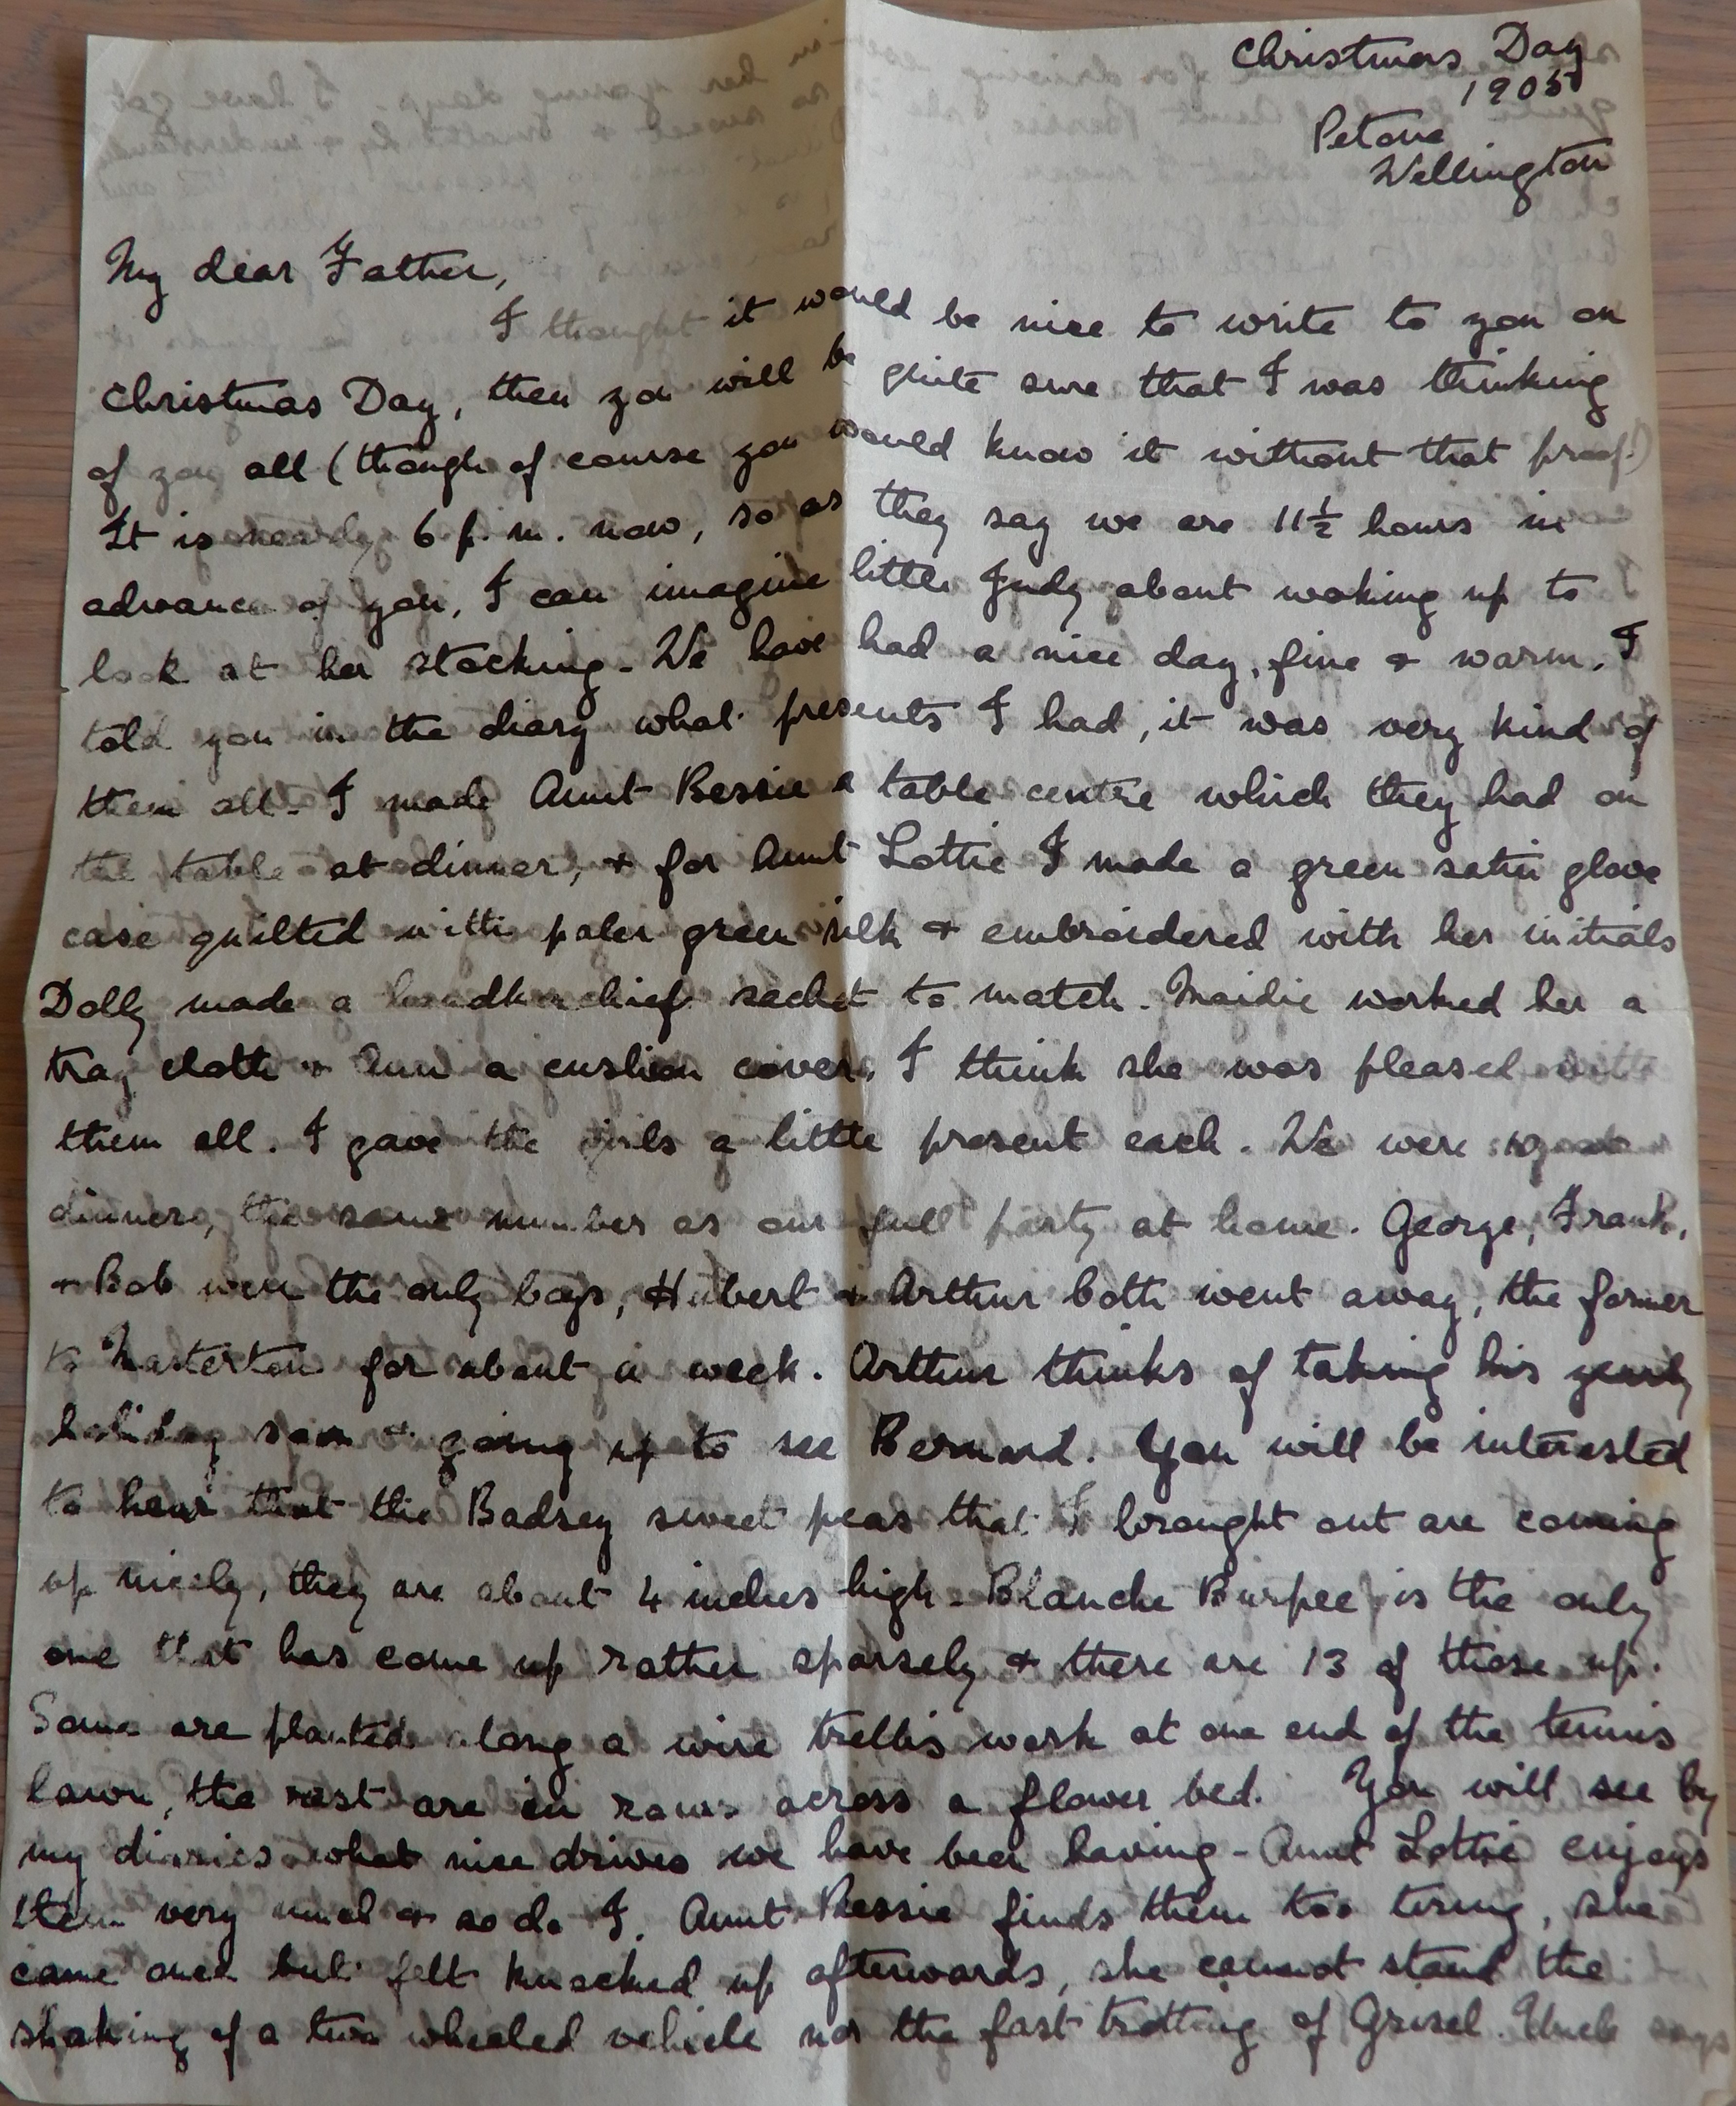 Christmas Day
1905
Petone
Wellington
My dear Father,
I thought it would be nice to write to you on
Christmas Day, then you will be quite sure that I was thinking
of you all (though of course you would know it without that proof.)
It is nearly 6 p.m. now, so as they say we are 11½ hours in
advance of you, I can imagine little Judy about waking up to
look at her stocking - We have had a nice day, fine & warm. I
told you in the diary what presents I had, it was very kind of
them all - I made Aunt Bessie a table centre which they had on
the table at dinner, & for Aunt Lottie I made a green satin glove
case quilted with paler green silk & embroidered with her initials
Dolly made a handkerchief sachet to match. Maidie worked her a
tray cloth & a cushion cover, I think she was pleased with
them all. I gave the girls a little present each. We were
dinner, the same number as our full party at home. George, Frank,
& Bob were the only boys, Hubert & Arthur both went away, the former
to Masterton for about a week. Arthur thinks of taking his yearly
holiday soon & going up to see Bernard. You will be interested
to hear that the Badsey sweet peas that I brought out are coming
up nicely, they are about 4 inches high - Blanche Burpee is the only
one that has come up rather sparsely & there are 13 of those up.
Some are planted along a wire trellis work at one end of the tennis
lawn, the rest are in rows across a flower bed. You will see by
my diaries what nice drives we have been having - Aunt Lottie enjoys
them very much & so do I. Aunt Bessie finds them too tiring, she
came once but felt knocked up afterwards, she cannot stand the
shaking of a two wheeled vehicle nor the fast trotting of Grisel. Uncle says